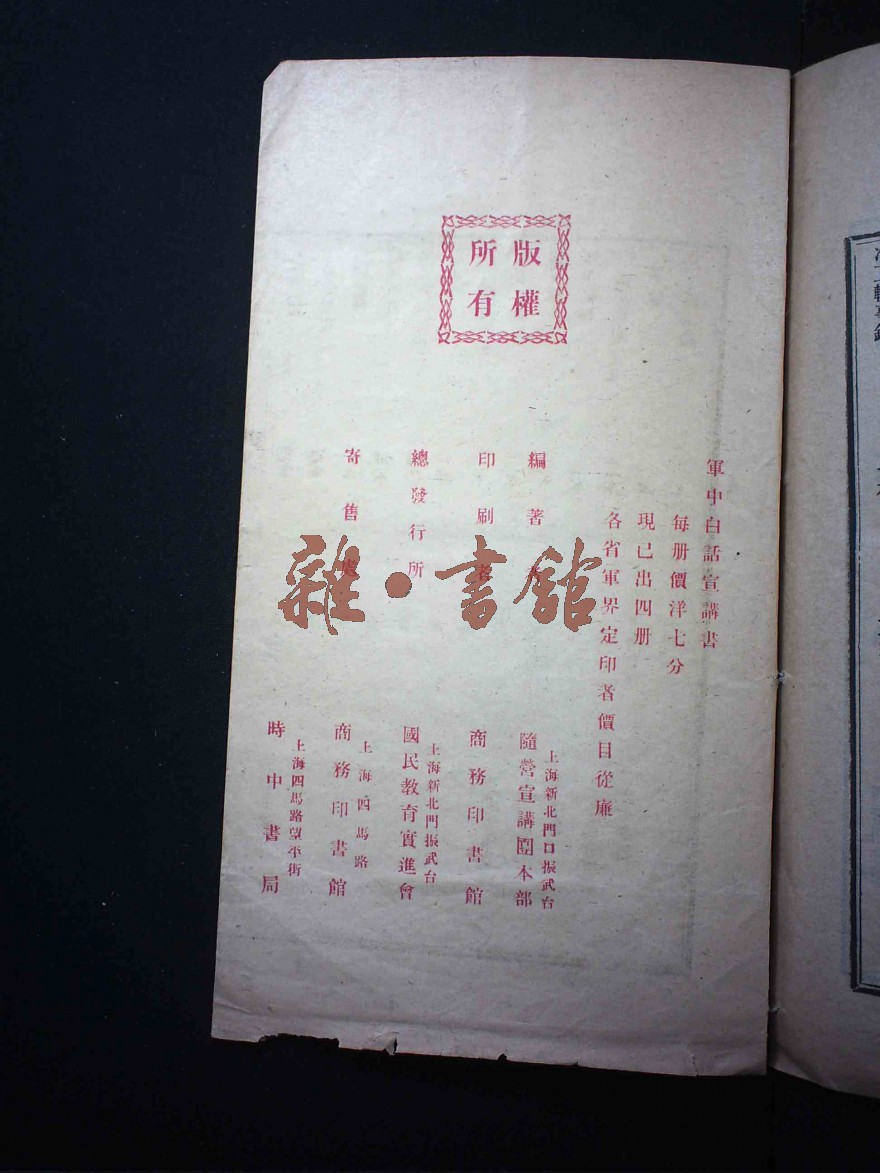 版權
所有
軍中白話宣講書
每册價洋七分
現已出四册
各省軍界定印者價目從廉
編著者
上海新北門口振武台
隨營宣講團本部
印刷者
商務印書館
總發行所
上海新北門振武台
國民教育實進會
寄售處
上海四馬路
商務印書館
上海四馬路望平街
時中書局
雜·書館